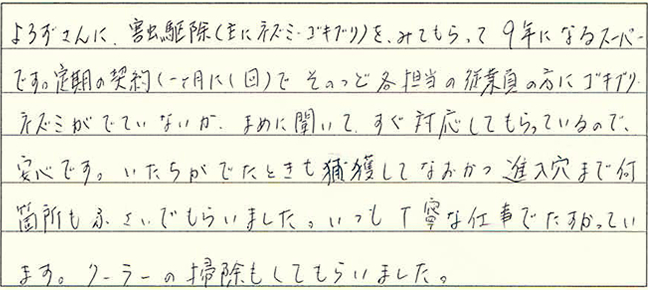 よろずさんに、害虫駆除(主にネズミ・ゴキブリ)を、みてもらって9年になるスーパー
です。定期の契約(一ヶ月に1回)で そのつど各担当の従業員の方にゴキブリ・
ネズミがでていないか、まめに聞いて、すぐ対応してもらっているので、
安心です。いたちがでたときも捕獲してなおかつ進入穴まで何
箇所もふさいでもらいました。いつも丁寧な仕事でたすかってい
ます。クーラーの掃除もしてもらいました。